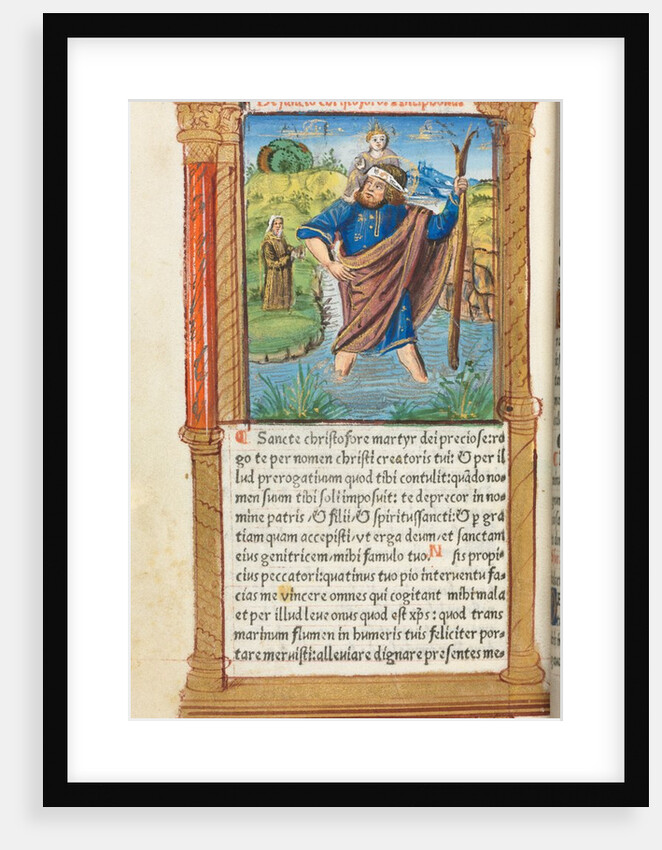 De sancto christoforo
¶ Sancte christofore martyr dei preciose:ro
go te per nomen christi creatoris tui: & per il
lud prerogatiuum quod tibi contulit:quãdo no-
men suum tibi soli imposuit: te deprecor in no-
mine patris /& filii/& spiritussancti:& p̱ gra
tiam quam accepisti/vt erga deum/et sanctam
eius genitricem/mihi famulo tuo.N sis propi-
cius peccatori:quatinus tuo pio interuentu fa-
cias me vincere omnes qui cogitant mihi mala
et per illud leue onus quod est xp̃s : quod trans
marinum flumen in humeris tuis feliciter por-
tare meruisti:alleuiare dignare presentes me-